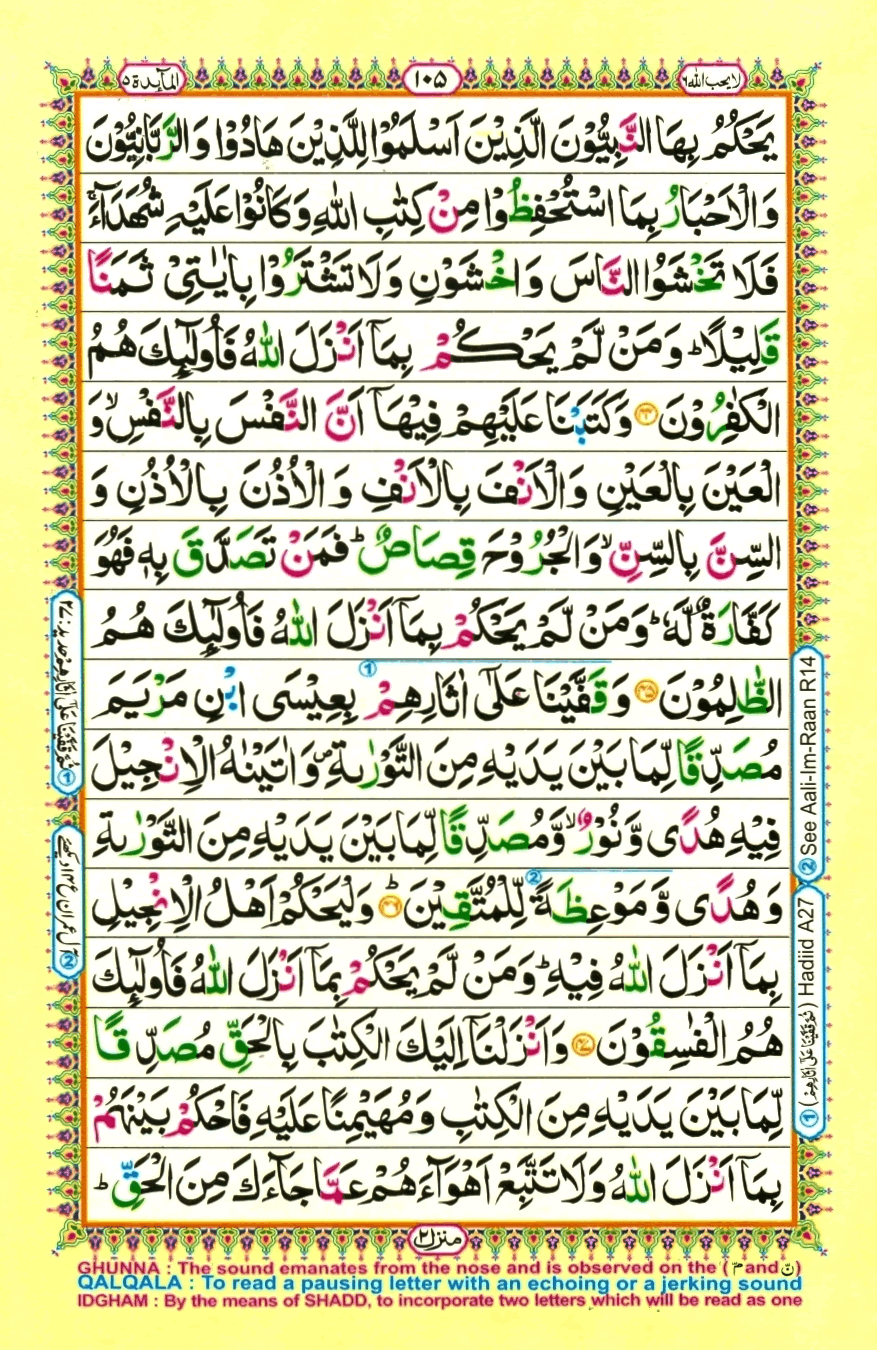 المآىدة ٥
١٠٥
لا يحب الله ٦
يَحْكُمُ بِهَا النَّبِيُّوْنَ الَّذِيْنَ اَسْلَمُوْا لِلَّذِيْنَ هَادُوْا وَالرَّبَّانِيُّوْنَ
وَالْاَحْبَارُ بِمَا اسْتُحْفِظُوْا مِنْ كِتٰبِ اللّٰهِ وَكَانُوْا عَلَيْهِ شُهَدَآءَ ۚ
فَلَا تَخْشَوُا النَّاسَ وَاخْشَوْنِ وَلَا تَشْتَرُوْا بِاٰيٰتِيْ ثَمَنًا
قَلِيْلًا ؕ وَمَنْ لَّمْ يَحْكُمْ بِمَآ اَنْزَلَ اللّٰهُ فَاُولٰٓئِكَ هُمُ
الْكٰفِرُوْنَ ۝۴۴ وَكَتَبْنَا عَلَيْهِمْ فِيْهَآ اَنَّ النَّفْسَ بِالنَّفْسِ ۙ وَ
الْعَيْنَ بِالْعَيْنِ وَالْاَنْفَ بِالْاَنْفِ وَالْاُذُنَ بِالْاُذُنِ وَ
السِّنَّ بِالسِّنِّ ۙ وَالْجُرُوْحَ قِصَاصٌ ؕ فَمَنْ تَصَدَّقَ بِهٖ فَهُوَ
كَفَّارَةٌ لَّهٗ ؕ وَمَنْ لَّمْ يَحْكُمْ بِمَآ اَنْزَلَ اللّٰهُ فَاُولٰٓئِكَ هُمُ
الظّٰلِمُوْنَ ۝۴۵ وَقَفَّيْنَا عَلٰٓى اٰثَارِهِمْ بِعِيْسَى ابْنِ مَرْيَمَ
مُصَدِّقًا لِّمَا بَيْنَ يَدَيْهِ مِنَ التَّوْرٰىةِ ۪ وَاٰتَيْنٰهُ الْاِنْجِيْلَ
فِيْهِ هُدًى وَّنُوْرٌ ۙ وَّمُصَدِّقًا لِّمَا بَيْنَ يَدَيْهِ مِنَ التَّوْرٰىةِ
وَهُدًى وَّمَوْعِظَةً لِّلْمُتَّقِيْنَ ؕ ۝۴۶ وَلْيَحْكُمْ اَهْلُ الْاِنْجِيْلِ
بِمَآ اَنْزَلَ اللّٰهُ فِيْهِ ؕ وَمَنْ لَّمْ يَحْكُمْ بِمَآ اَنْزَلَ اللّٰهُ فَاُولٰٓئِكَ
هُمُ الْفٰسِقُوْنَ ۝۴۷ وَاَنْزَلْنَآ اِلَيْكَ الْكِتٰبَ بِالْحَقِّ مُصَدِّقًا
لِّمَا بَيْنَ يَدَيْهِ مِنَ الْكِتٰبِ وَمُهَيْمِنًا عَلَيْهِ فَاحْكُمْ بَيْنَهُمْ
بِمَآ اَنْزَلَ اللّٰهُ وَلَا تَتَّبِعْ اَهْوَآءَهُمْ عَمَّا جَآءَكَ مِنَ الْحَقِّ ؕ
② See Aali-Im-Raan R14
① (ثم قفينا على اثارهم) Hadiid A27
① ثم قفينا على اثارهم حديد: ٢٧
② آل عمران ع ١٤ ديكهئے
منزل ٢
GHUNNA : The sound emanates from the nose and is observed on the (مّ and نّ)
QALQALA : To read a pausing letter with an echoing or a jerking sound
IDGHAM : By the means of SHADD, to incorporate two letters which will be read as one